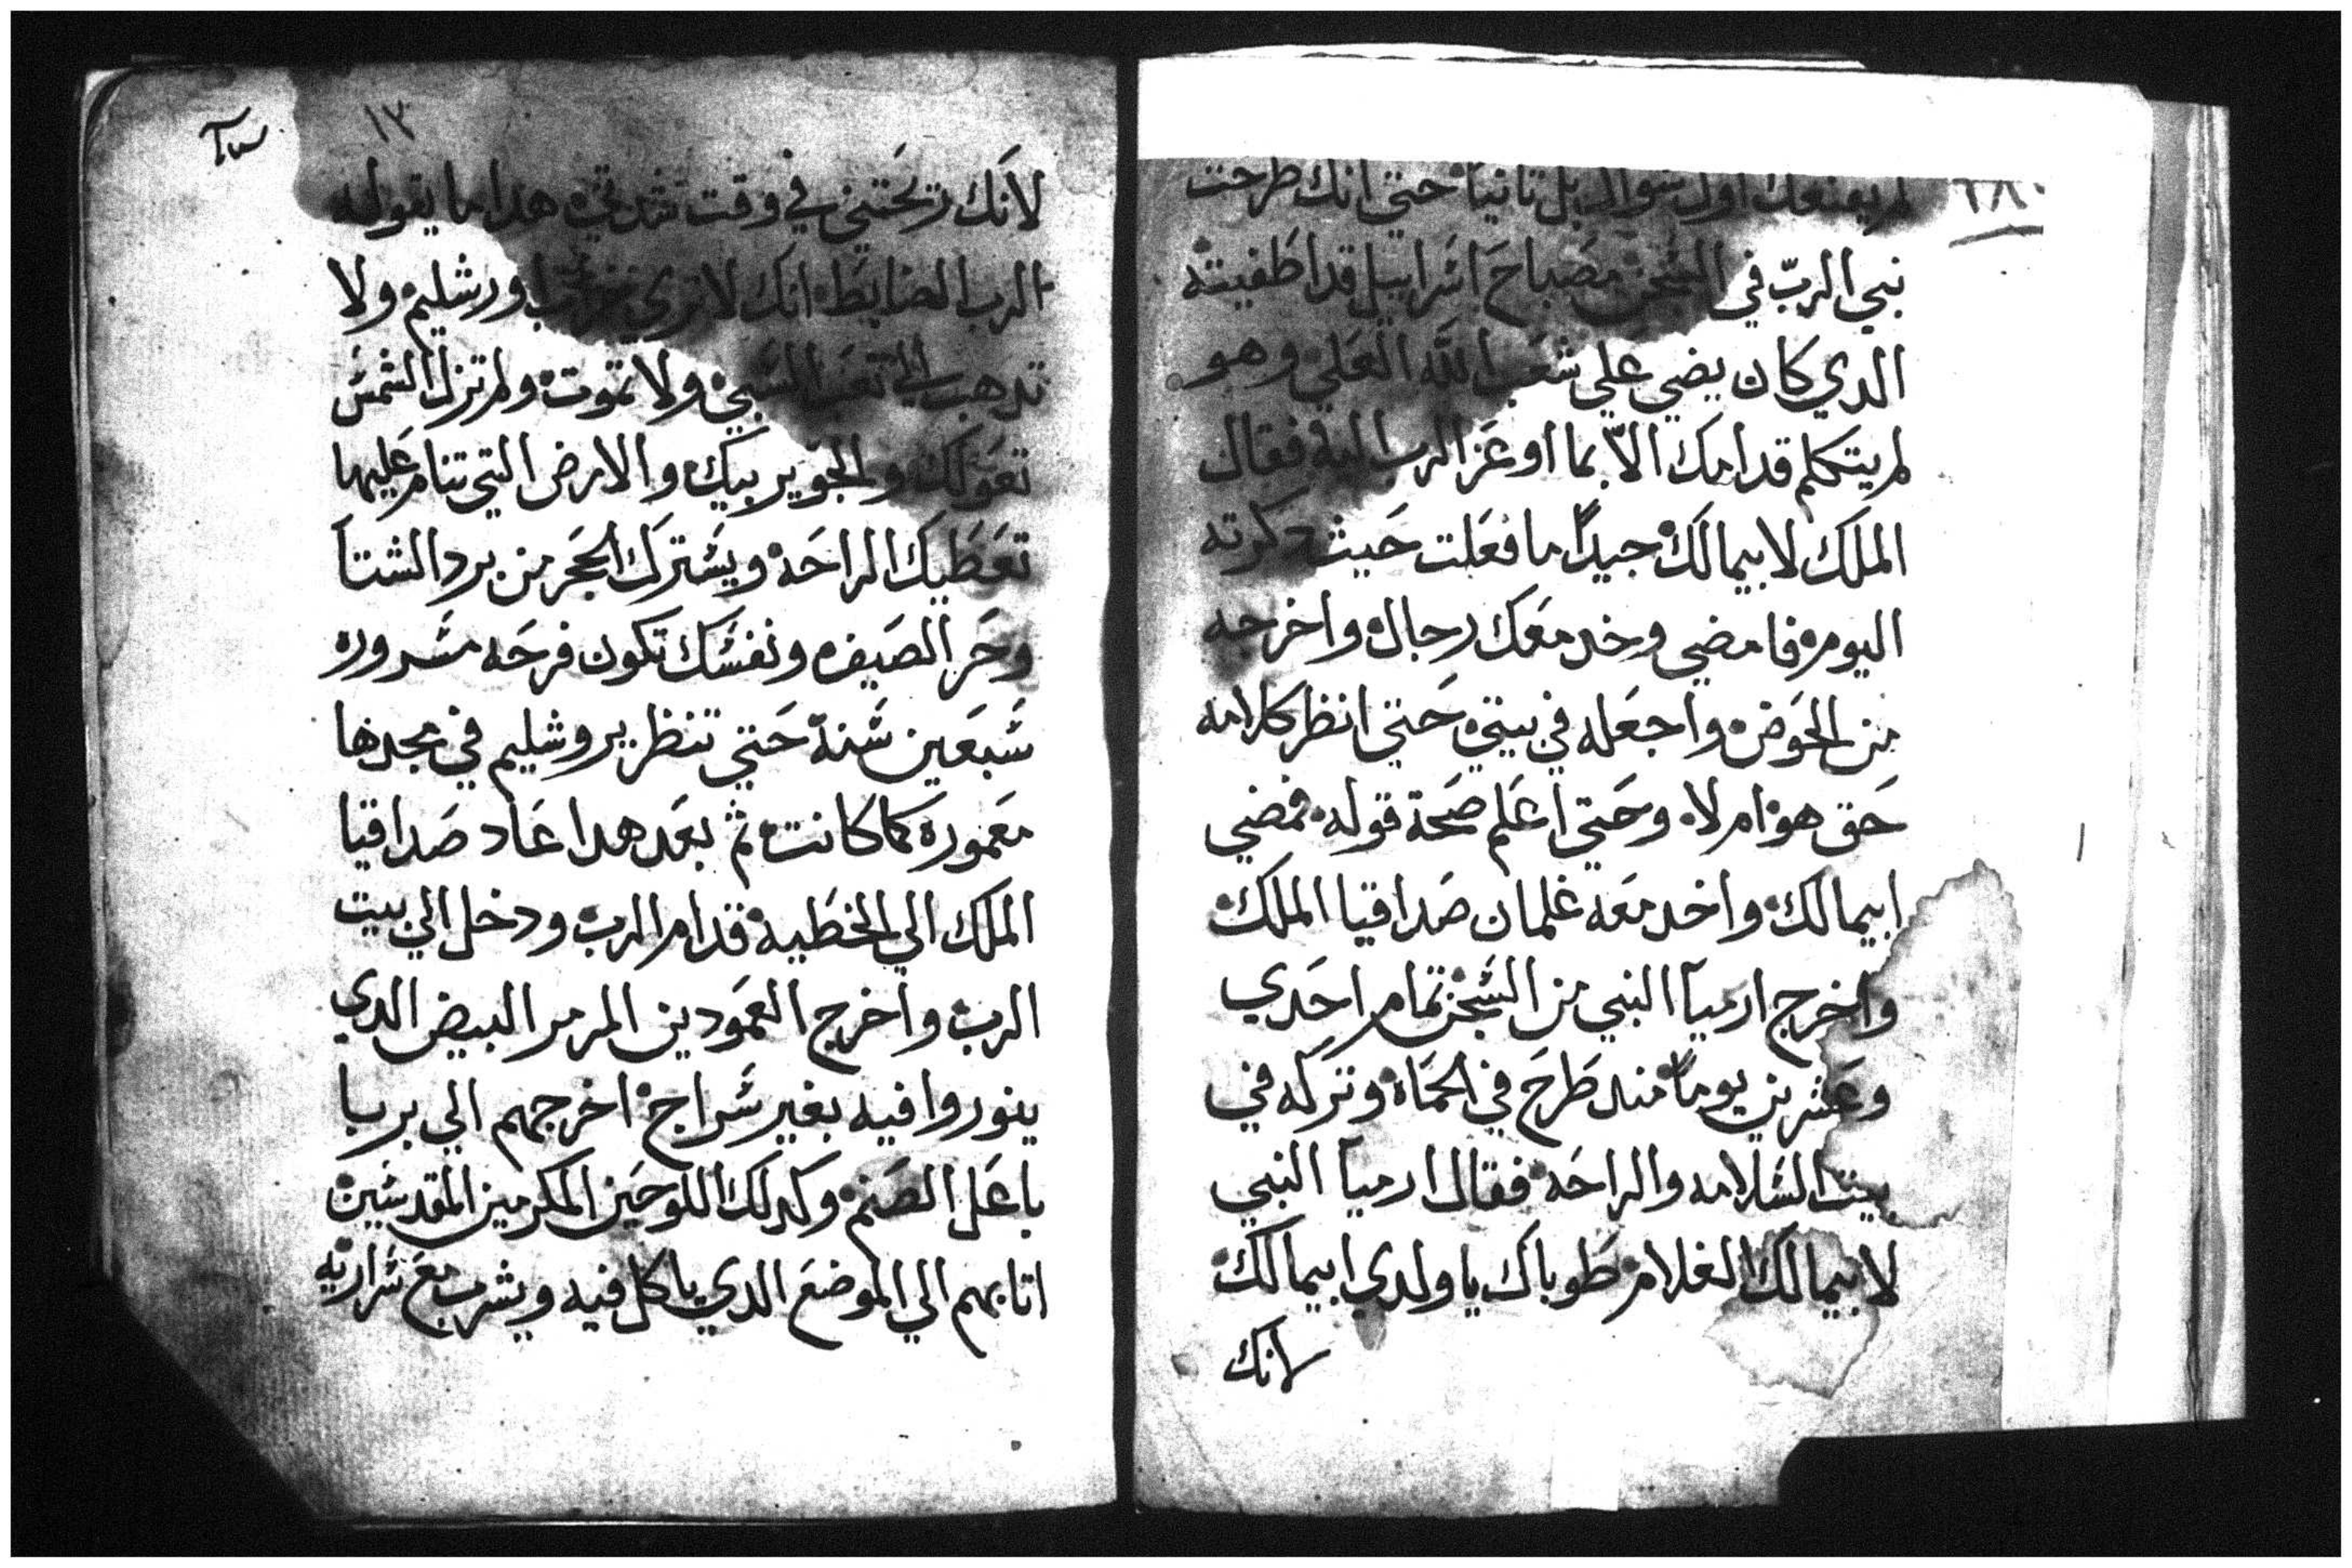 لم يقنعك اول سوال بل تانيا حتي انك طرحت
نبي الرب في السجن مصباح اسراييل قد اطفيته
الدي كان يضي علي شعب الله العلي وهو
لم يتكلم قدامك الا بما اوعز الرب اليه فقال
الملك لابيمالك جيدا ما فعلت حيث دكرته
اليوم فامضي وخد معك رجال واخرجه
من الحوض واجعله في بيتي حتي انظر كلامه
حق هو ام لا وحتي اعلم صحة قوله فمضي
ابيمالك واخد معه غلمان صداقيا الملك
واخرج ارميا النبي من السجن تمام احدي
وعشرين يوما مند طرح في الحماه وتركه في
بيت السلامه والراحه فقال ارميا النبي
لابيمالك الغلام طوباك يا ولدي ابيمالك
لانك
١٣
لانك رحمتني في وقت شدتي هدا ما يقوله
الرب الضابط انك لا تري خراب اورشليم ولا
تدهب الي تعب السبي ولا تموت ولم تزل الشمس
تعولك والجو يربيك والارض التي تنام عليها
تعطيك الراحه ويسترك الحجر من برد الشتا
وحر الصيف ونفسك تكون فرحه مسروره
سبعين سنة حتي تنظر يروشليم في مجدها
معموره كما كانت ثم بعد هدا عاد صداقيا
الملك الي الخطية قدام الرب ودخل الي بيت
الرب واخرج العمودين المرمر البيض الدي
ينوروا فيه بغير سراج اخرجهم الي بربا
باعل الصنم وكدلك اللوحين المكرمين المقدسين
اتا بهم الي الموضع الدي ياكل فيه ويشرب مع سراريه